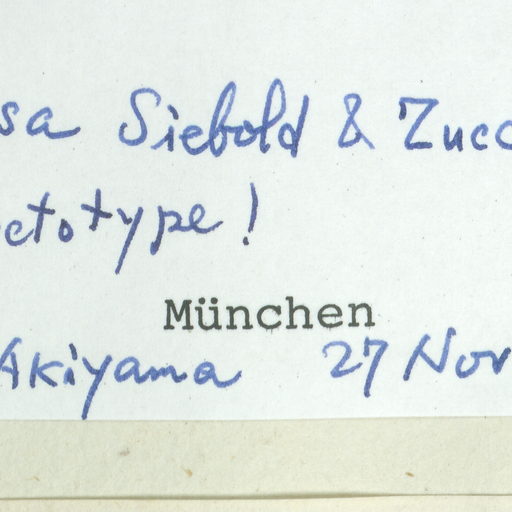 sa Siebold & Zucc
ctotype!
München
Akiyama 27 Nov